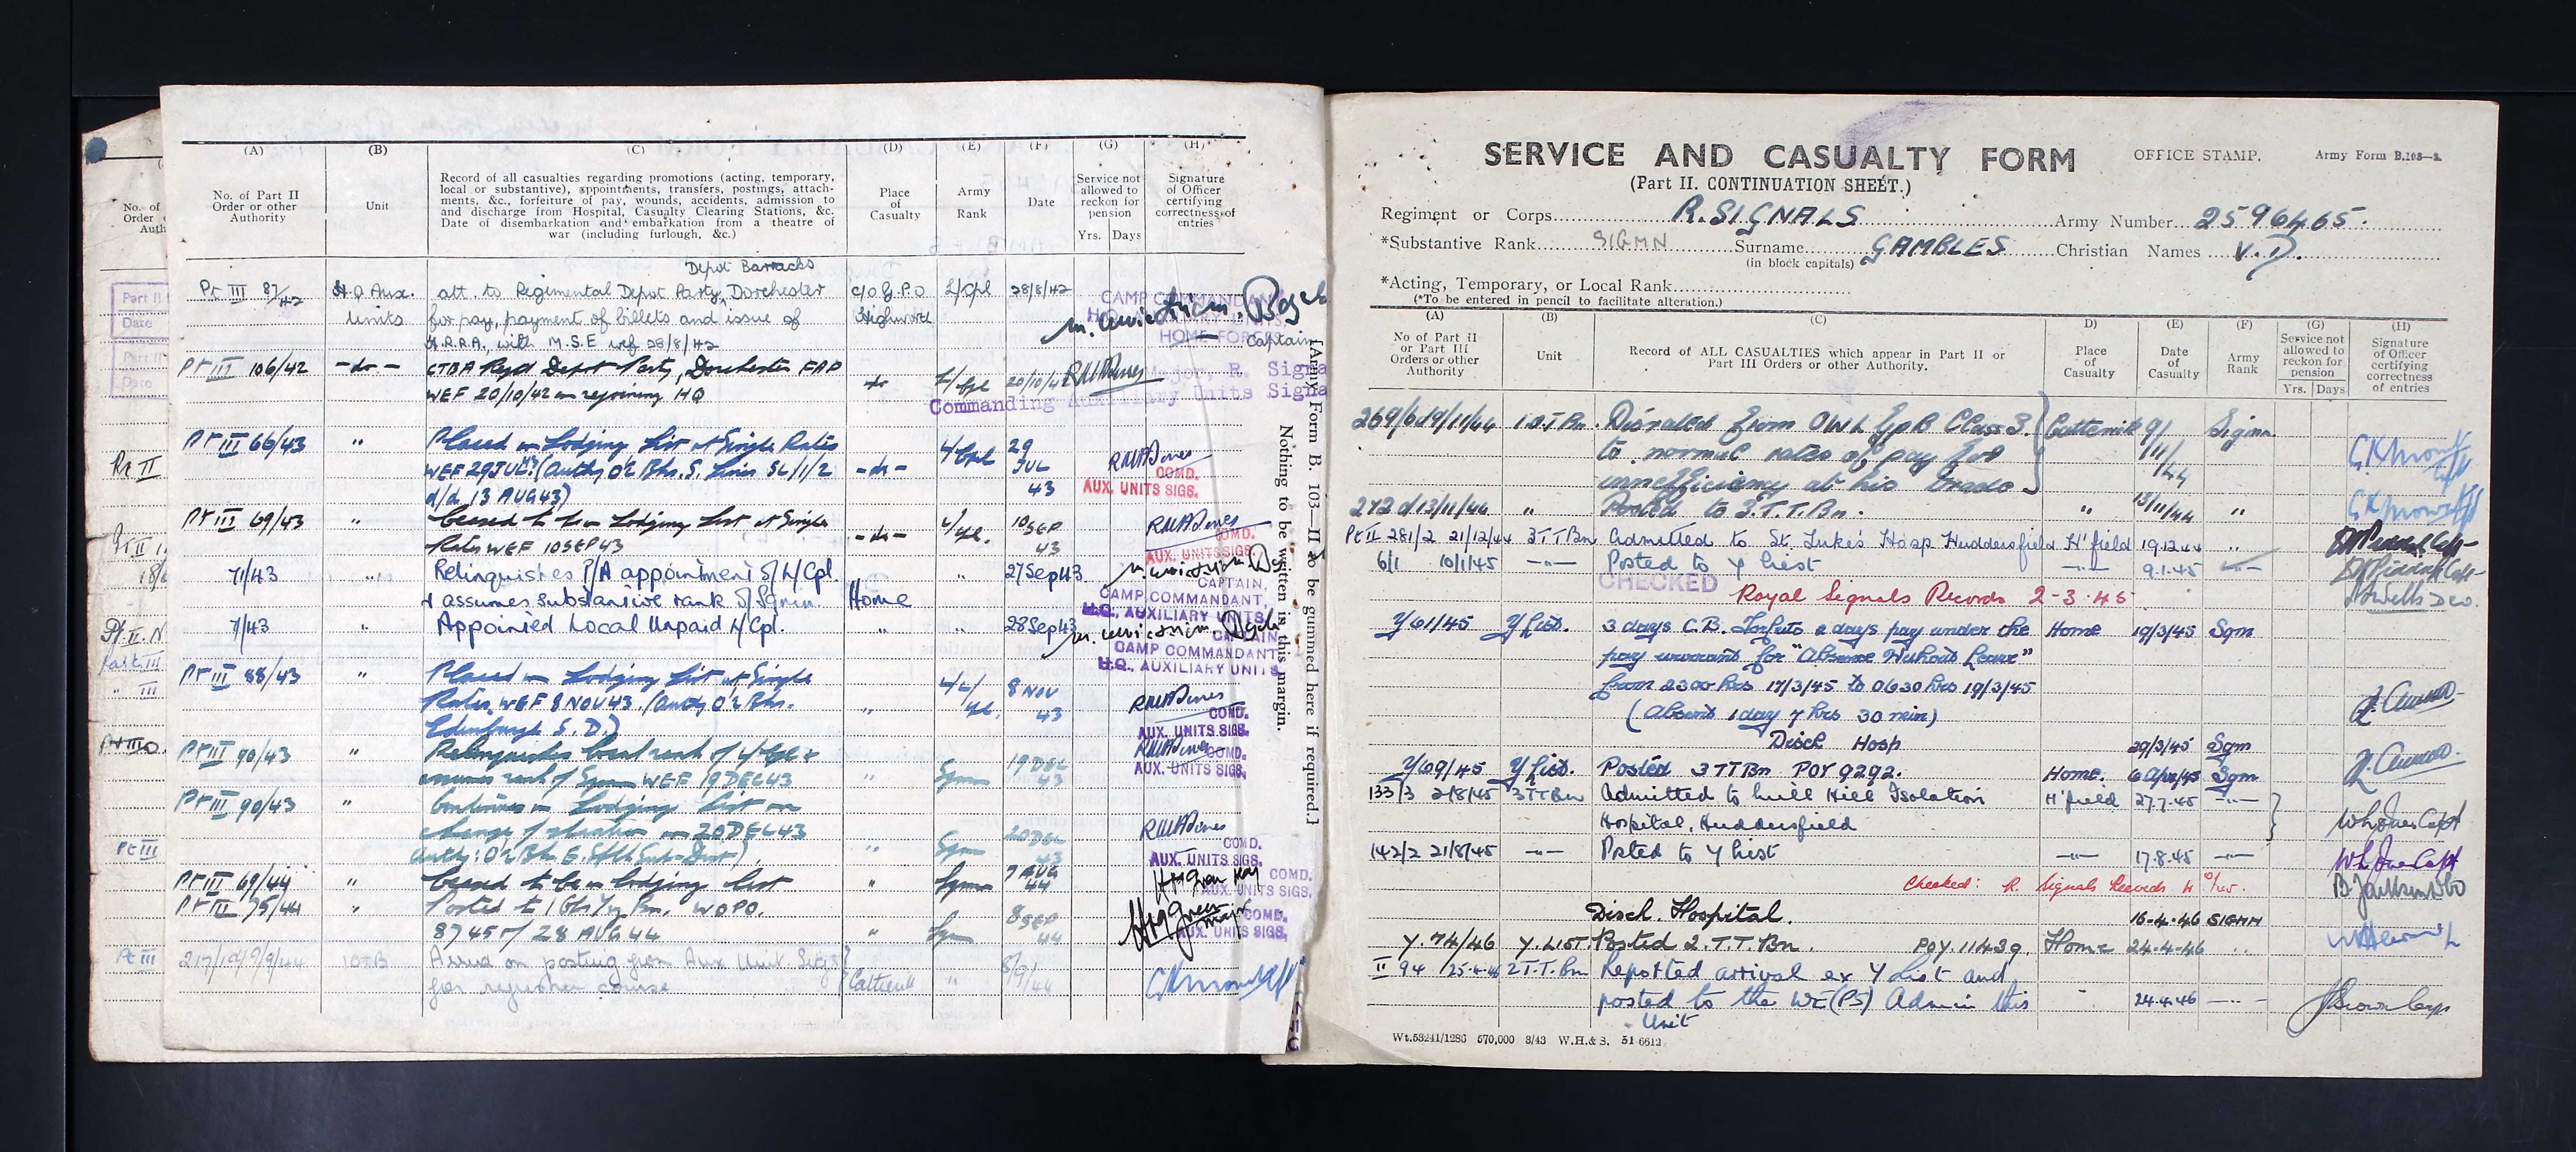 (A) (B) (C) (D) (E) (F) (G) (H)
No. of Part II Order or other Authority
Unit
Record of all casualties regarding promotions (acting, temporary,
local or substantive), appointments, transfers, postings, attach-
ments, &c., forfeiture of pay, wounds, accidents, admission to
and discharge from Hospital, Casualty Clearing Stations, &c.
Date of disembarkation and embarkation from a theatre of
war (including furlough, &c.)
Place of Casualty
Army Rank
Date
Service not allowed to reckon for pension
Yrs. Days
Signature of Officer certifying correctness of entries
Depot Barracks
Pt III 87/42 H.Q Aux. att. to Regimental Depot Party, Dorchester c/o G.P.O L/Cpl 28/8/42
Units for pay, payment of billets and issue of Highworth
with M.S.E wef 28/8/42
CAMP COMMANDANT
HOME FORCES
Captain
Pt III 106/42 -do- Regd Depot Party, Dorchester
WEF 20/10/42 on rejoining HQ
Major, R. Signa
Commanding Auxiliary Units Signa
Pt III 66/43 " Placed on Lodging List at Single Rates L/Cpl 29
WEF 29 JUL 43 -do- JUL
d/d 13 AUG 43) 43
COMD.
AUX. UNITS SIGS.
Pt III 69/43 " Ceased to be on Lodging List at Single 10 SEP
Rates WEF 10 SEP 43 -do- 43
COMD.
AUX. UNITS SIGS.
71/43 " Relinquishes P/A appointment of L/Cpl. " 27 Sep 43
& assumes substantive rank of Sgmn. Home
CAPTAIN,
CAMP COMMANDANT,
H.Q., AUXILIARY UNITS
71/43 " Appointed Local Unpaid L/Cpl. " " 28 Sep 43
CAPTAIN
CAMP COMMANDANT
H.Q., AUXILIARY UNITS
Pt III 88/43 " Placed on Lodging List at Single 8 NOV
Rates, WEF 8 NOV 43. " 43
Edinburgh S.D.)
COMD.
AUX. UNITS SIGS.
Pt III 90/43 " Relinquishes local rank of L/Cpl & 19 DEC
assumes rank of Sgmn WEF 19 DEC 43 " Sgmn 43
COMD.
AUX. UNITS SIGS.
Pt III 90/43 " Continues on Lodging List on
change of station on 20 DEC 43 20 DEC
" Sgmn 43
COMD.
AUX. UNITS SIGS.
Pt III 69/44 " Ceased to be on lodging list " Sgmn 7 AUG 44
COMD.
AUX. UNITS SIGS.
Pt III 75/44 " Posted to WOPO. 8 SEP
8745 of 28 AUG 44 " Sgmn 44
COMD.
AUX. UNITS SIGS.
on posting from Aux Unit. Sigs 8/9/44
for refresher course Catterick "
[Army Form B. 103—II to be gummed here if required.]
Nothing to be written in this margin.
SERVICE AND CASUALTY FORM
OFFICE STAMP.
Army Form B.103—
(Part II. CONTINUATION SHEET.)
Regiment or Corps R. SIGNALS Army Number 2596465.
*Substantive Rank SIGMN Surname GAMBLES Christian Names V. D.
(in block capitals)
*Acting, Temporary, or Local Rank
(*To be entered in pencil to facilitate alteration.)
(A) (B) (C) D) (E) (F) (G) (H)
No of Part II or Part III Orders or other Authority
Unit
Record of ALL CASUALTIES which appear in Part II or
Part III Orders or other Authority.
Place of Casualty
Date of Casualty
Army Rank
Service not allowed to reckon for pension
Yrs. Days
Signature of Officer certifying correctness of entries
Disrated from OWL Gp B Class 3. Catterick 9/ Sigmn.
to normal rates of pay for 11/
inefficiency at his trade 44
272 d 13/11/44 " Posted to 3.T.T.Bn. " 13/11/44 "
Pt II 281/2 21/12/44 3TTBn Admitted to St. Luke's Hosp Huddersfield H'field 19.12.44 "
6/1 10/1/45 Posted to Y List 9.1.45
CHECKED
Royal Signals Records 2-3-45
Y/61/45 Y List. 3 days C.B. Forfeits 2 days pay under the Home 19/3/45 Sgm
pay warrant for "Absence Without Leave"
from 2300 hrs 17/3/45 to 0630 hrs 19/3/45
(Absent 1 day 7 hrs 30 min)
Disch Hosp 29/3/45 Sgm
Y/69/45 Y List. Posted 3 TT Bn POY 9292. Home. 6 Apr/45 Sgm
133/3 2/8/45 3TTBn Admitted to Mill Hill Isolation H'field 27.7.45
Hospital, Huddersfield
142/2 21/8/45 Posted to Y List 17.8.45
Checked: R. Signals Records
Disch. Hospital. 16-4-46 SIGMN
Y.74/46 Y.LIST Posted 2.T.T.Bn. POY.11439. Home 24-4-46
II 94 25-4-46 2T.T.Bn Reported arrival ex Y List and
posted to the WE(PS) Admin this 24.4.46
Unit
Wt.53241/1286 570,000 3/43 W.H.& S. 51-6612